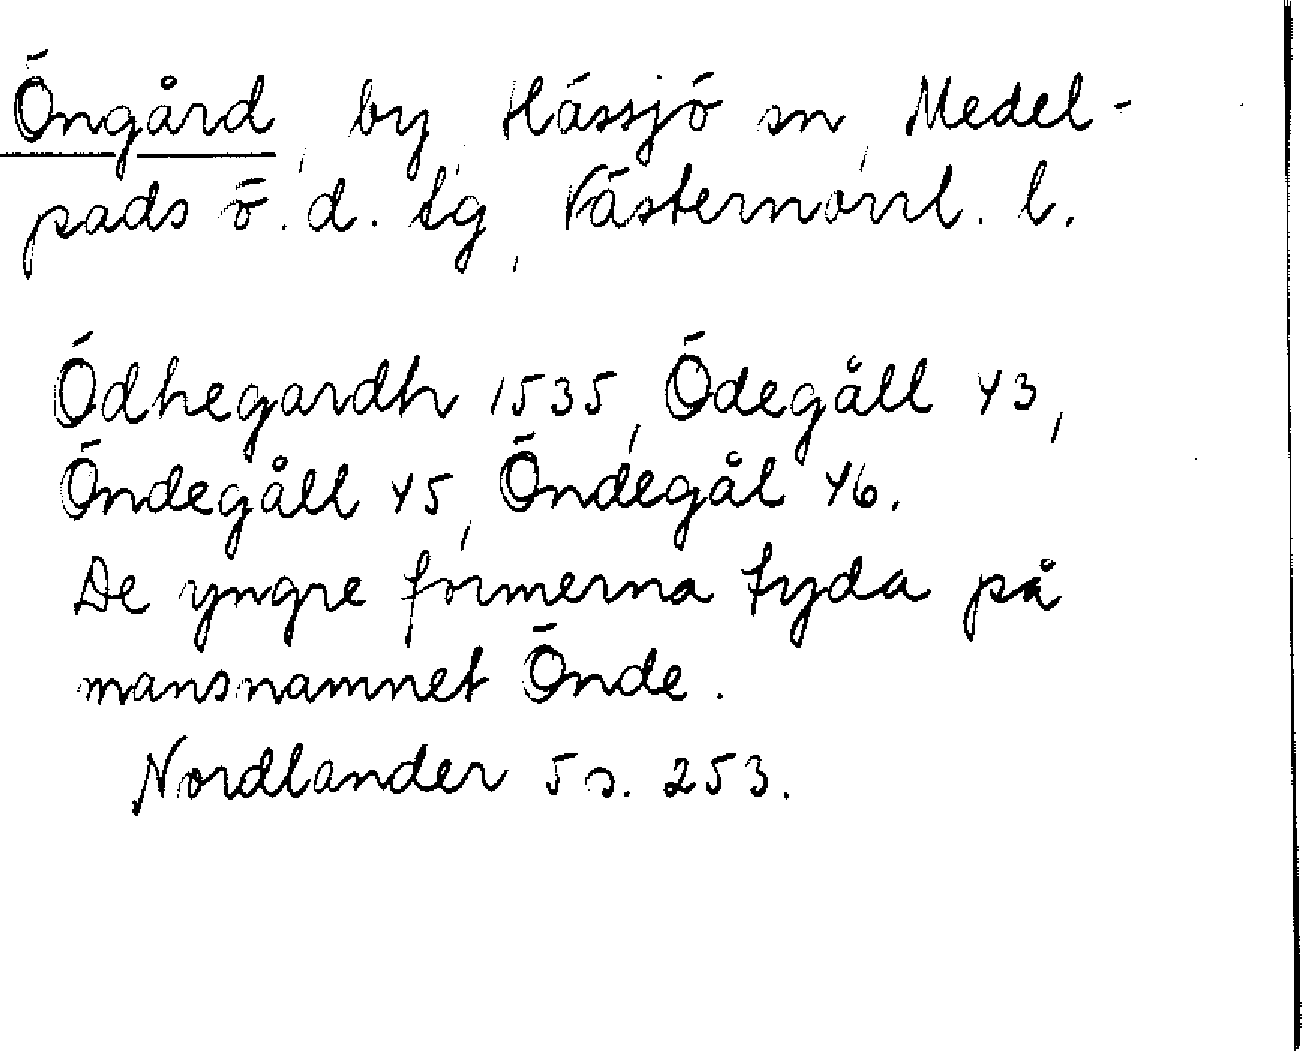 Öngård, by, Hässjö sn, Medel-
pads ö. d. tg, Västernorrl. l.
Ödhegardh 1535, Ödegåll 43,
Öndegåll 45, Öndegål 46.
De yngre formerna tyda på
mansnamnet Önde.
Nordlander 5 s. 253.